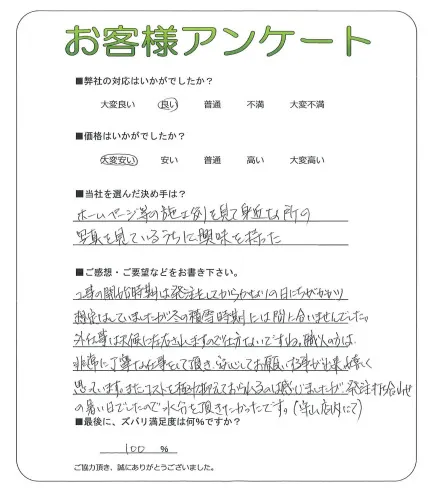 お客様アンケート
■弊社の対応はいかがでしたか?
大変良い 良い 普通 不満 大変不満
■価格はいかがでしたか?
大変安い 安い 普通 高い 大変高い
■当社を選んだ決め手は?
ホームページ等の施工例を見て身近な所の
写真を見ているうちに興味を持った
■ご感想・ご要望などをお書き下さい。
工事の開始時期は発注をしてからかなりの日にちがかかり
想定はしていましたが冬の積雪時期には間に合いませんでした。
外仕事は天候に左右しますので仕方ないですね。職人の方は
非常に丁寧な仕事をして頂き、安心してお願いする事が出来、嬉しく
思っています。またコストを極力抑えておられるのは感じましたが、発注打ち合わせ
の暑い日でしたので水分を頂きたかったです。(店内にて)
■最後に、ズバリ満足度は何%ですか?
100 %
ご協力頂き、誠にありがとうございました。